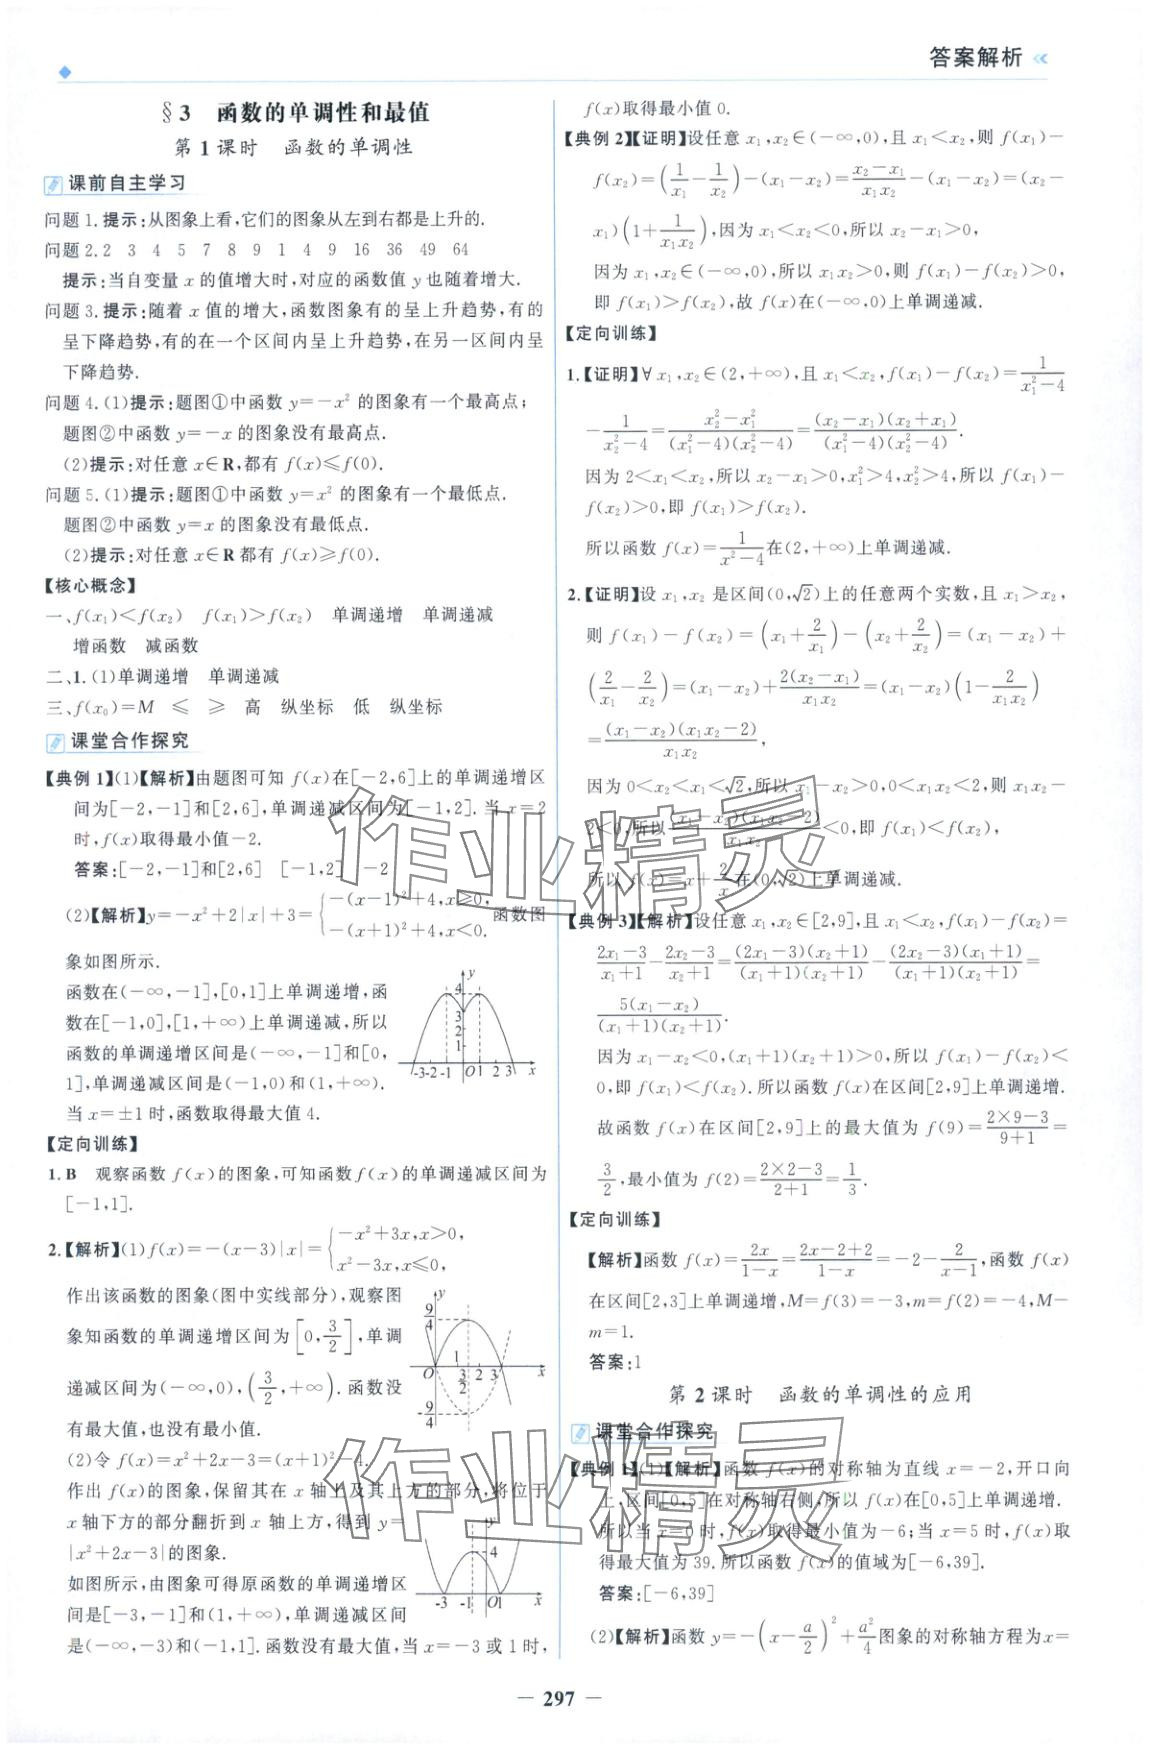 答案解析
§3 函数的单调性和最值
第1课时 函数的单调性
课前自主学习
问题1.提示:从图象上看,它们的图象从左到右都是上升的.
问题2.2 3 4 5 7 8 9 1 4 9 16 36 49 64
提示:当自变量x的值增大时,对应的函数值y也随着增大.
问题3.提示:随着x值的增大,函数图象有的呈上升趋势,有的
呈下降趋势,有的在一个区间内呈上升趋势,在另一区间内呈
下降趋势.
问题4.(1)提示:题图①中函数y=-x²的图象有一个最高点;
题图②中函数y=-x的图象没有最高点.
(2)提示:对任意x∈R,都有f(x)≤f(0).
问题5.(1)提示:题图①中函数y=x²的图象有一个最低点.
题图②中函数y=x的图象没有最低点.
(2)提示:对任意x∈R都有f(x)≥f(0).
【核心概念】
一、f(x₁)<f(x₂) f(x₁)>f(x₂) 单调递增 单调递减
增函数 减函数
二、1.(1)单调递增 单调递减
三、f(x₀)=M ≤ ≥ 高 纵坐标 低 纵坐标
课堂合作探究
【典例1】(1)【解析】由题图可知f(x)在[-2,6]上的单调递增区
间为[-2,-1]和[2,6],单调递减区间为[-1,2].当x=2
时,f(x)取得最小值-2.
答案:[-2,-1]和[2,6] [-1,2] -2
(2)【解析】y=-x²+2|x|+3={-(x-1)²+4,x≥0, -(x+1)²+4,x<0. 函数图
象如图所示.
函数在(-∞,-1],[0,1]上单调递增,函
数在[-1,0],[1,+∞)上单调递减,所以
函数的单调递增区间是(-∞,-1]和[0,
1],单调递减区间是(-1,0)和(1,+∞).
当x=±1时,函数取得最大值4.
y
4
3
2
1
-3 -2 -1 O 1 2 3 x
【定向训练】
1.B 观察函数f(x)的图象,可知函数f(x)的单调递减区间为
[-1,1].
2.【解析】(1)f(x)=-(x-3)|x|={-x²+3x,x>0, x²-3x,x≤0,
作出该函数的图象(图中实线部分),观察图
象知函数的单调递增区间为[0,3/2],单调
递减区间为(-∞,0),(3/2,+∞).函数没
有最大值,也没有最小值.
y
9/4
O 1 3/2 2 3 x
-9/4
(2)令f(x)=x²+2x-3=(x+1)²-4.
作出f(x)的图象,保留其在x轴上及其上方的部分,将位于
x轴下方的部分翻折到x轴上方,得到y=
|x²+2x-3|的图象.
如图所示,由图象可得原函数的单调递增区
间是[-3,-1]和(1,+∞),单调递减区间
是(-∞,-3)和(-1,1].函数没有最大值,当x=-3或1时,
y
4
-3 -1 O 1 x
f(x)取得最小值0.
【典例2】【证明】设任意x₁,x₂∈(-∞,0),且x₁<x₂,则f(x₁)-
f(x₂)=(1/x₁-1/x₂)-(x₁-x₂)=(x₂-x₁)/(x₁x₂)-(x₁-x₂)=(x₂-
x₁)(1+1/(x₁x₂)),因为x₁<x₂<0,所以x₂-x₁>0,
因为x₁,x₂∈(-∞,0),所以x₁x₂>0,则f(x₁)-f(x₂)>0,
即f(x₁)>f(x₂),故f(x)在(-∞,0)上单调递减.
【定向训练】
1.【证明】∀x₁,x₂∈(2,+∞),且x₁<x₂,f(x₁)-f(x₂)=1/(x₁²-4)
-1/(x₂²-4)=(x₂²-x₁²)/((x₁²-4)(x₂²-4))=(x₂-x₁)(x₂+x₁)/((x₁²-4)(x₂²-4)).
因为2<x₁<x₂,所以x₂-x₁>0,x₁²>4,x₂²>4,所以f(x₁)-
f(x₂)>0,即f(x₁)>f(x₂).
所以函数f(x)=1/(x²-4)在(2,+∞)上单调递减.
2.【证明】设x₁,x₂是区间(0,√2)上的任意两个实数,且x₁>x₂,
则f(x₁)-f(x₂)=(x₁+2/x₁)-(x₂+2/x₂)=(x₁-x₂)+
(2/x₁-2/x₂)=(x₁-x₂)+2(x₂-x₁)/(x₁x₂)=(x₁-x₂)(1-2/(x₁x₂))
=(x₁-x₂)(x₁x₂-2)/(x₁x₂),
因为0<x₂<x₁<√2,所以x₁-x₂>0,0<x₁x₂<2,则x₁x₂-
2<0,所以(x₁-x₂)(x₁x₂-2)/(x₁x₂)<0,即f(x₁)<f(x₂),
所以f(x)=x+2/x在(0,√2)上单调递减.
【典例3】【解析】设任意x₁,x₂∈[2,9],且x₁<x₂,f(x₁)-f(x₂)=
(2x₁-3)/(x₁+1)-(2x₂-3)/(x₂+1)=(2x₁-3)(x₂+1)/((x₁+1)(x₂+1))-(2x₂-3)(x₁+1)/((x₁+1)(x₂+1))=
5(x₁-x₂)/((x₁+1)(x₂+1)).
因为x₁-x₂<0,(x₁+1)(x₂+1)>0,所以f(x₁)-f(x₂)<
0,即f(x₁)<f(x₂).所以函数f(x)在区间[2,9]上单调递增.
故函数f(x)在区间[2,9]上的最大值为f(9)=(2×9-3)/(9+1)=
3/2,最小值为f(2)=(2×2-3)/(2+1)=1/3.
【定向训练】
【解析】函数f(x)=2x/(1-x)=(2x-2+2)/(1-x)=-2-2/(x-1),函数f(x)
在区间[2,3]上单调递增,M=f(3)=-3,m=f(2)=-4,M-
m=1.
答案:1
第2课时 函数的单调性的应用
课堂合作探究
【典例1】(1)【解析】函数f(x)的对称轴为直线x=-2,开口向
上,区间[0,5]在对称轴右侧,所以f(x)在[0,5]上单调递增.
所以当x=0时,f(x)取得最小值为-6;当x=5时,f(x)取
得最大值为39.所以函数f(x)的值域为[-6,39].
答案:[-6,39]
(2)【解析】函数y=-(x-a/2)²+a²/4图象的对称轴方程为x=
作业精灵
作业精灵
— 297 —